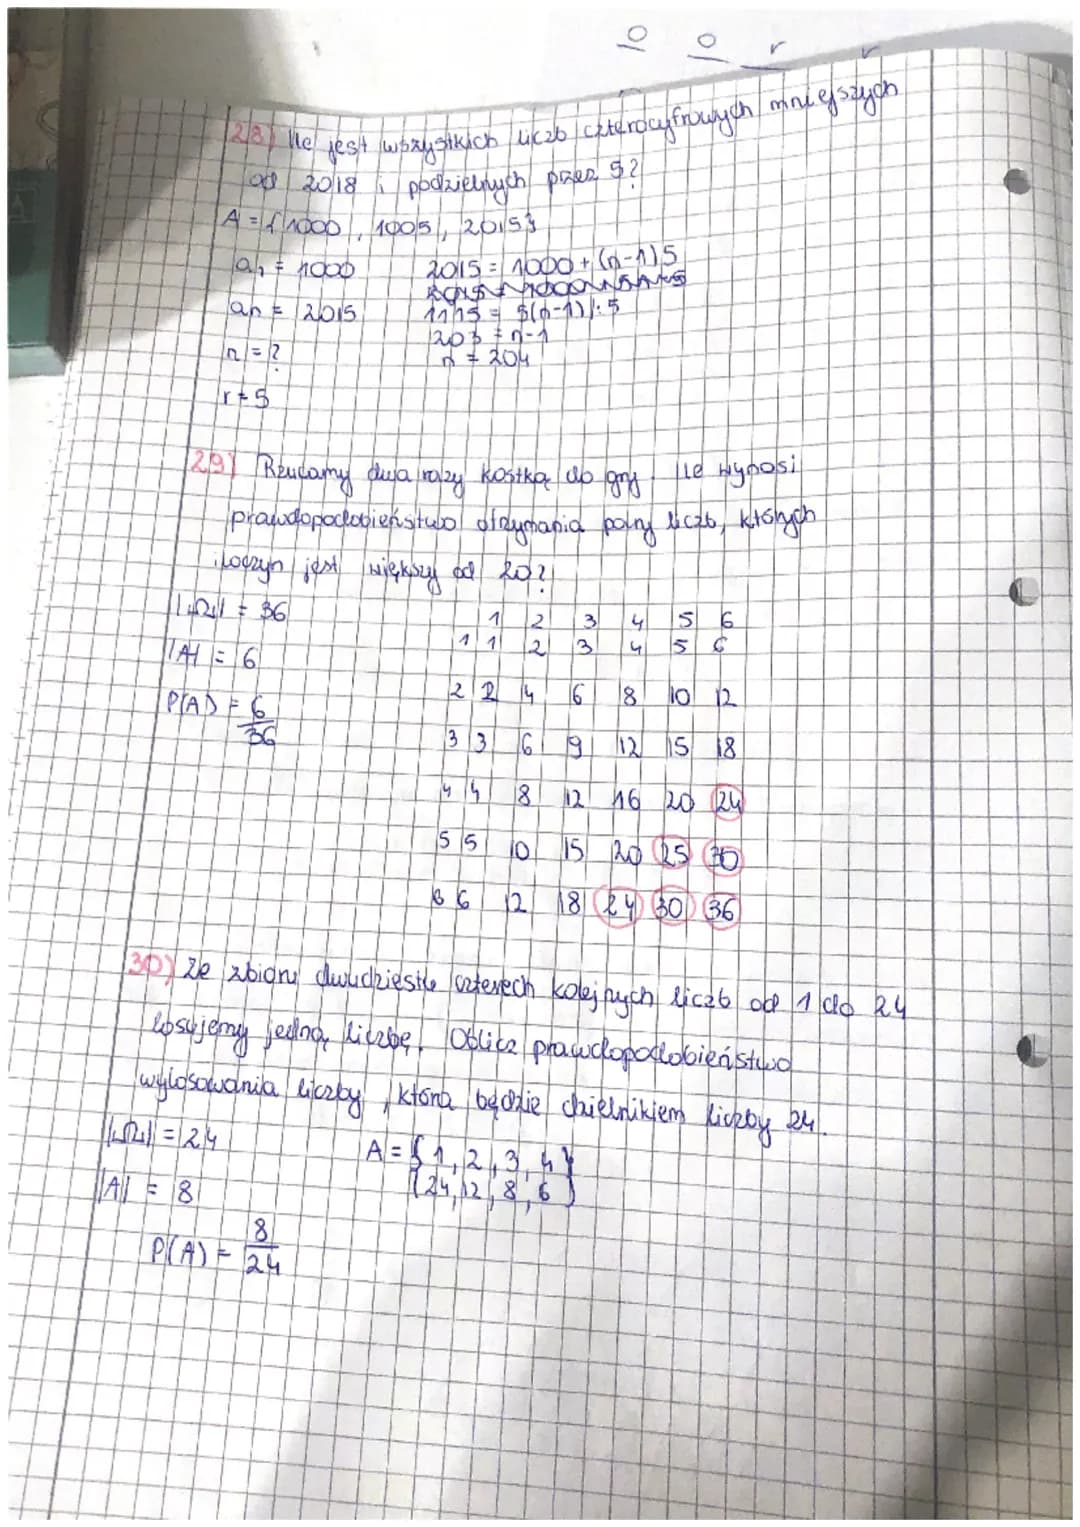 o o r r
28) Ile jest wszystkich liczb czterocyfrowych mniejszych
od 2018 i podzielnych przez 5?
A = {1000, 1005, 2015}
a₁ = 1000 2015 = 1000 + (n-1)5
an = 2015 1115 = 5(n-1) /:5
203 = n-1
n = ? n = 204
r = 5
29) Rzucamy dwa razy kostką do gry. Ile wynosi
prawdopodobieństwo otrzymania pary liczb, których
iloczyn jest większy od 20?
|Ω| = 36 1 2 3 4 5 6
|A| = 6 1 1 2 3 4 5 6
P(A) = 6/36 2 2 4 6 8 10 12
3 3 6 9 12 15 18
4 4 8 12 16 20 24
5 5 10 15 20 25 30
6 6 12 18 24 30 36
30) Ze zbioru dwudziestu czterech kolejnych liczb od 1 do 24
losujemy jedną liczbę. Oblicz prawdopodobieństwo
wylosowania liczby, która będzie dzielnikiem liczby 24.
|Ω| = 24 A = {1, 2, 3, 4
|A| = 8 24, 12, 8, 6}
P(A) = 8/24